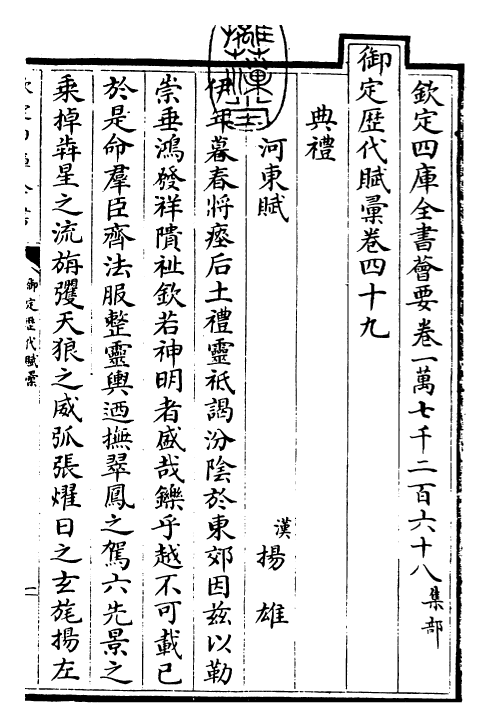 欽定四庫全書薈要卷一萬七千二百六十八集部
御定歴代賦彙卷四十九
典禮
河東賦 漢揚雄
伊年暮春將瘞后土禮靈祇謁汾陰於東郊因兹以勒
崇垂鴻發祥隤祉欽若神明者盛哉鑠乎越不可載已
於是命羣臣齊法服整靈輿迺撫翠鳳之駕六先景之
乘掉犇星之流旃彏天狼之威弧張燿日之玄旄揚左
御定歴代賦彙